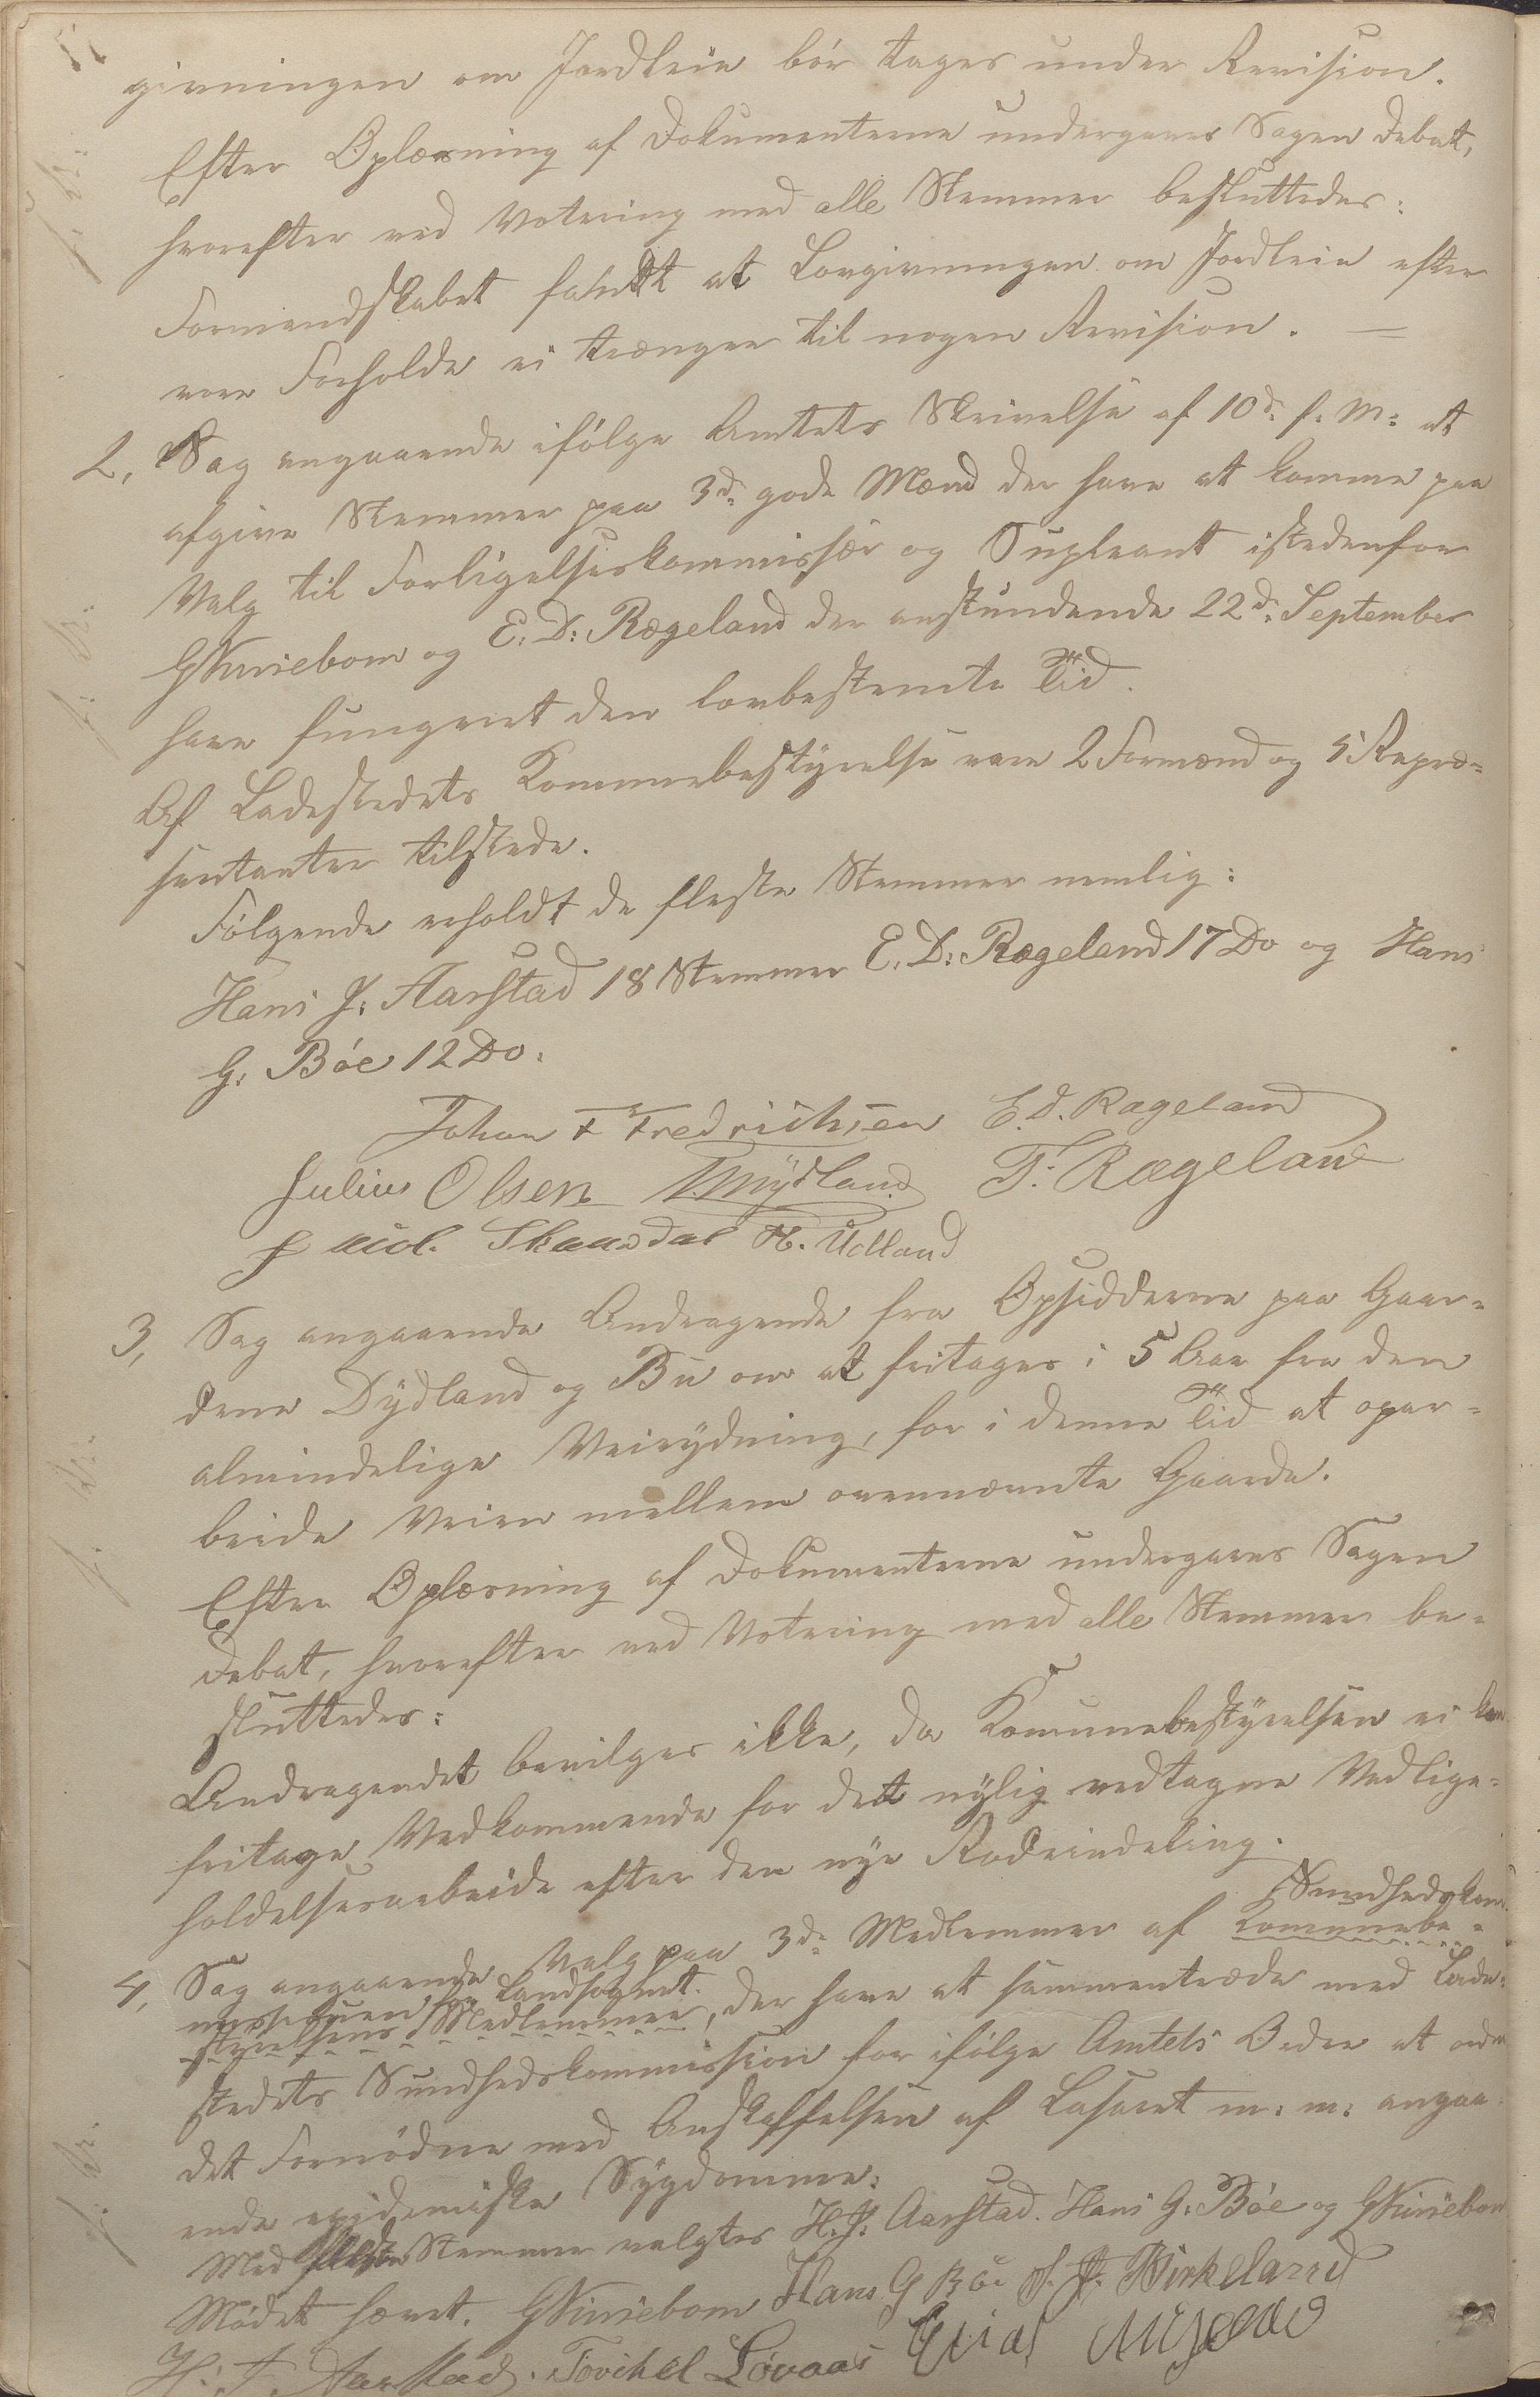 givningen om Jordleie bør tages under Revision.
Efter Oplæsning af Dokumenterne undergaves Sagen Debat,
hvorefter ved Votering med alle Stemmer besluttedes:
Formandskabet fandt at Lovgivningen om Jordleie efter
vore Forholde ei trænger til nogen Revision. —
2, Sag angaaende ifølge Amtets Skrivelse af 10d: f. M: at
afgive Stemmer paa 3de gode Mænd der have at komme paa
Valg til Forligelseskommissær og Supleant istedenfor
G Kvinebom og E: D: Rægeland der anstundende 22d: September
have fungeret den lovbestemte Tid.
Af Ladestedets Kommunebestyrelse vare 2 Formænd og 5 Repræ-
sentanter tilstede.
Følgende erholdt de fleste Stemmer nemlig:
Hans J. Aarstad 18 Stemmer E. D: Rægeland 17 Do og Hans
G. Bøe 12 Do.
Johan F Fredrichsen E. D. Rageland
Julius Olsen Mydland T. Rægeland
Jacob. Skaardal H. Udland
3, Sag angaaende Andragende fra Opsidderne paa Gaar-
dene Dydland og Bu om at fritages i 5 Aar fra den
almindelige Veirydning, for i denne Tid at opar-
beide Veien mellem ovennævnte Gaarde.
Efter Oplæsning af Dokumenterne undergaves Sagen
Debat, hvorefter ved Votering med alle Stemmer be-
sluttedes:
Andragendet bevilges ikke, da Komunebestyrelsen ei kan
fritage Vedkommende for det nylig vedtagne Vedlige-
holdelsesarbeide efter den nye Rodeinddeling.
Sundhedskom-
4, Sag angaaende Valg paa 3de Medlemmer af Komunebe-
missionen for Landsognet.
styrelsens Medlemmer, der have at sammentræde med Lade-
stedets Sundhedskommission for ifølge Amtets Ordre at ordne
det Fornødne med Anskaffelsen af Lasaret m: m: angaa-
ende epidemiske Sygdomme.
Med fleste Stemmer valgtes H. J. Aarstad. Hans G. Bøe og G Kvinebom
Mødet hævet. G Kvinebom Hans G Bøe J. J. Birkeland
H. J. Aarstad. Torkel Lovaas Elias